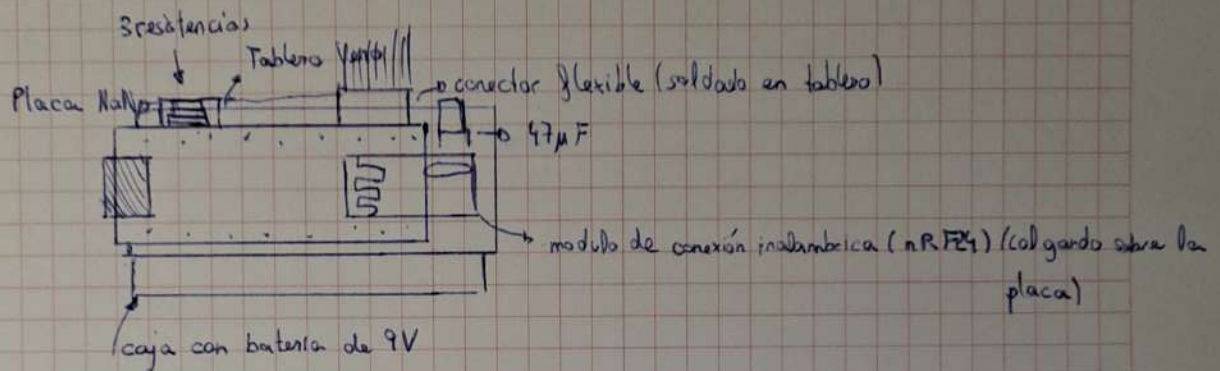 3 resistencias
Tablero
Placa NaNo
conector flexible (soldado en tablero)
47µF
modulo de conexión inalambrica (nRF24) (colgando sobre la
placa)
caja con bateria de 9V